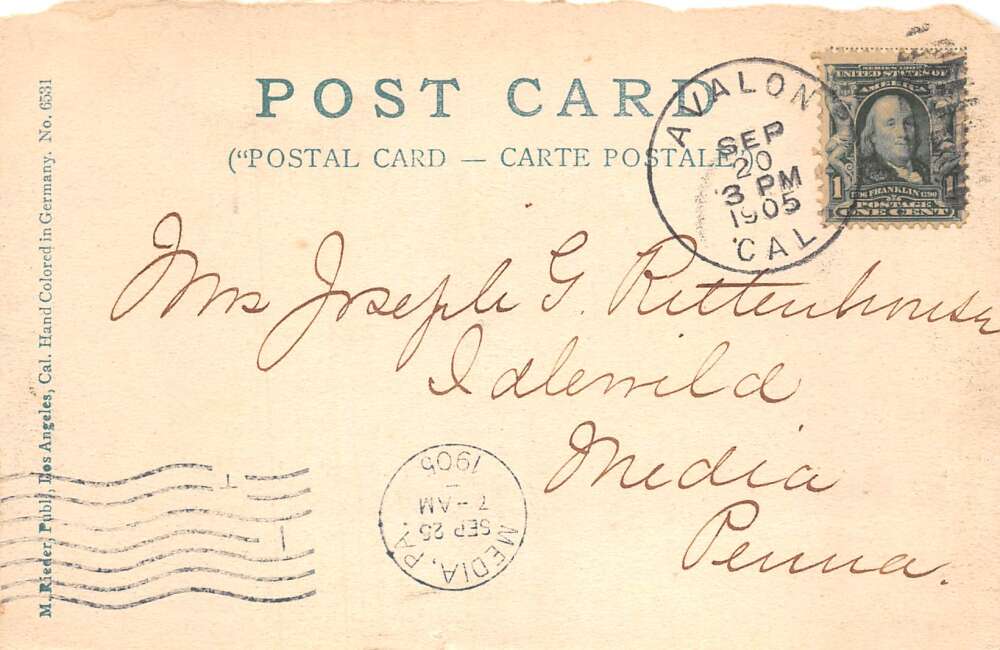 POST CARD
("POSTAL CARD — CARTE POSTALE")
AVALON
SEP
20
3 PM
1905
CAL
UNITED STATES OF
AMERICA
1 FRANKLIN 1
POSTAGE
ONE CENT
Mrs Joseph G. Rittenhouse
Idlewild
Media
Penna.
MEDIA, PA.
SEP 25
7 - AM
1905
M. Rieder, Publ., Los Angeles, Cal. Hand Colored in Germany. No. 6531